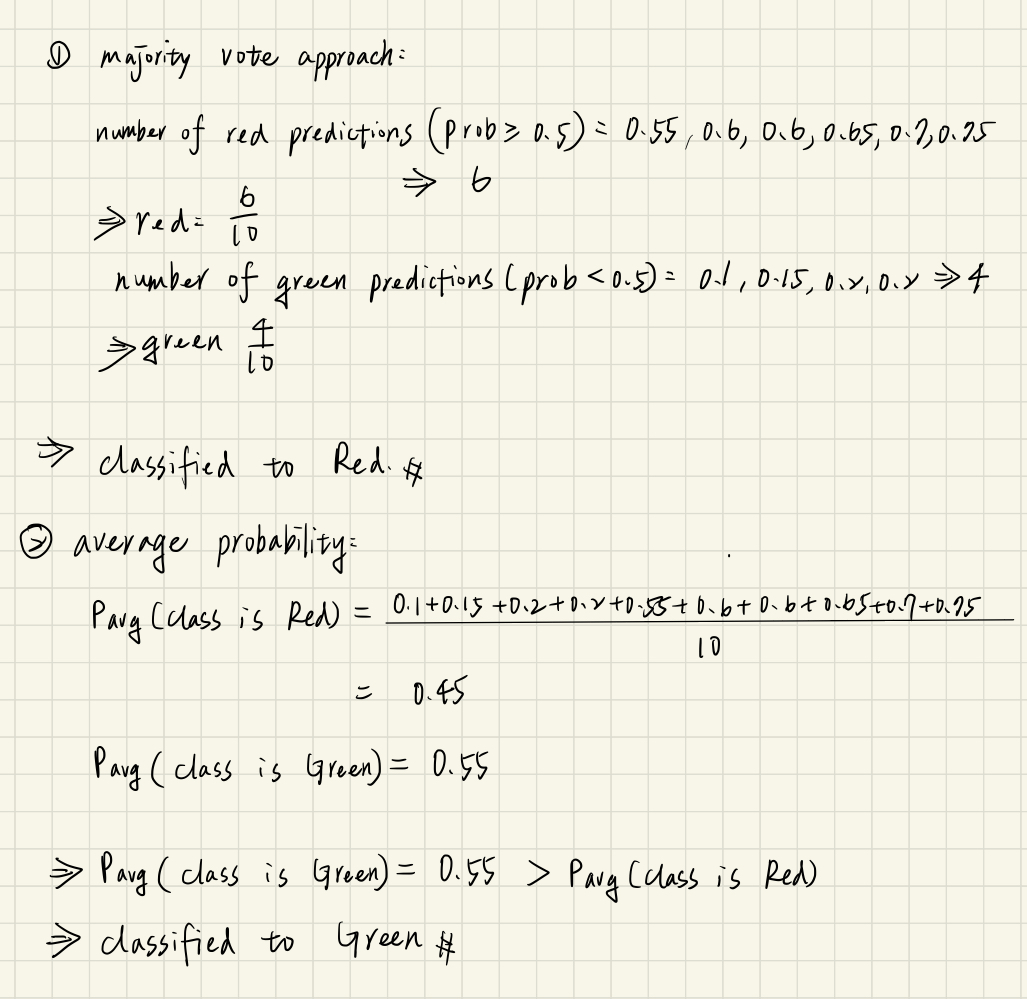 ① majority vote approach:
number of red predictions (prob ≥ 0.5) = 0.55, 0.6, 0.6, 0.65, 0.7, 0.75
⇒ 6
⇒ red = 6/10
number of green predictions (prob < 0.5) = 0.1, 0.15, 0.2, 0.2 ⇒ 4
⇒ green 4/10
⇒ classified to Red. #
② average probability:
Pavg (class is Red) = (0.1+0.15+0.2+0.2+0.55+0.6+0.6+0.65+0.7+0.75)/10
= 0.45
Pavg (class is Green) = 0.55
⇒ Pavg (class is Green) = 0.55 > Pavg (class is Red)
⇒ classified to Green #